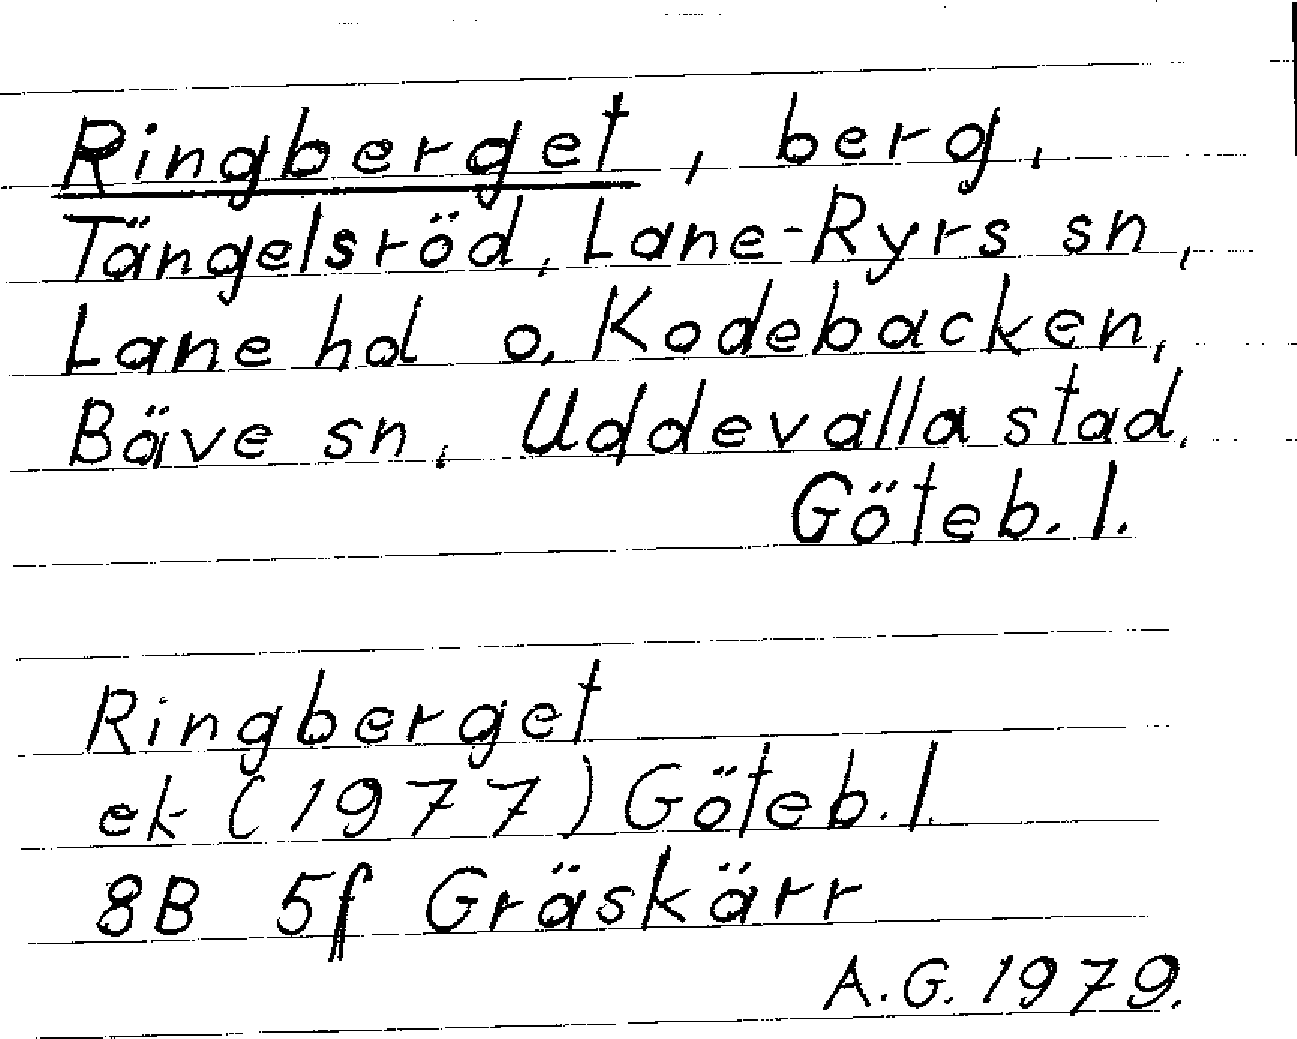 Ringberget, berg,
Tängelsröd, Lane-Ryrs sn,
Lane hd o. Kodebacken,
Bäve sn, Uddevalla stad,
Göteb. l.
Ringberget
ek (1977) Göteb. l.
8B 5f Gräskärr
A.G. 1979.